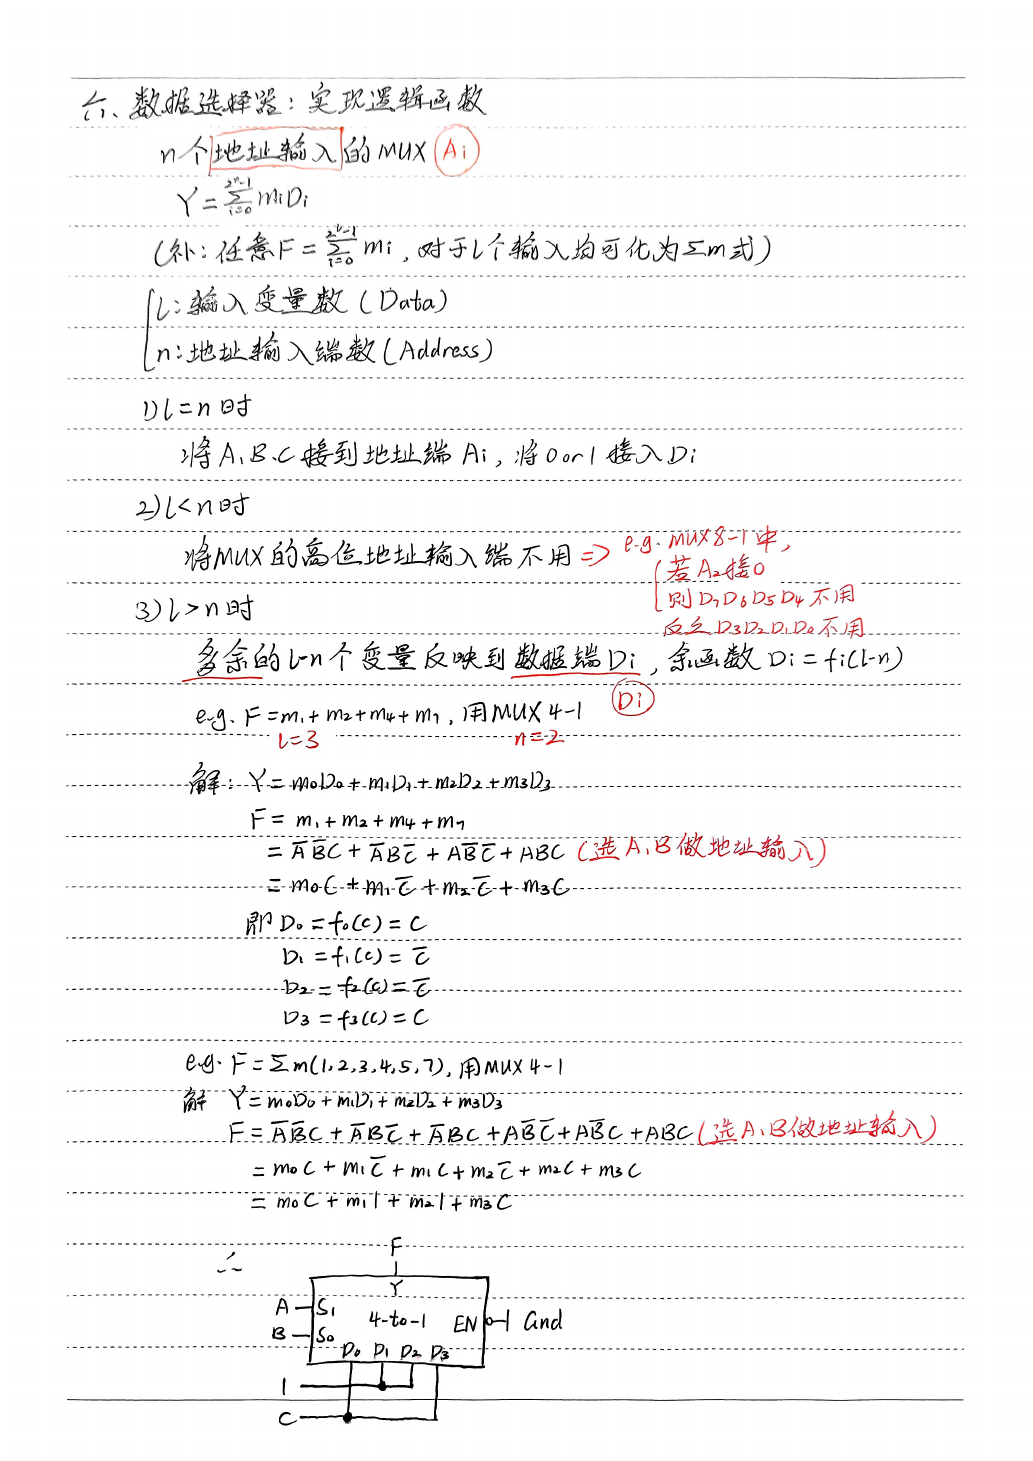 六、数据选择器：实现逻辑函数
n个地址输入的MUX Ai
Y=∑(i=0→2ⁿ-1) miDi
(补：任意F=∑(i=0→2ˡ-1) mi，对于l个输入均可化为∑m式)
l：输入变量数(Data)
n：地址输入端数(Address)
1) l=n时
将A、B、C接到地址端Ai，将0or1接入Di
2) l<n时
将MUX的高位地址输入端不用 => e.g. MUX8-1中，
若A₂接0
则D₇D₆D₅D₄不用
反之D₃D₂D₁D₀不用
3) l>n时
多余的l-n个变量反映到数据端Di，余函数Di=fi(l-n)
Di
e.g. F=m₁+m₂+m₄+m₇，用MUX4-1
l=3 n=2
解：Y=m₀D₀+m₁D₁+m₂D₂+m₃D₃
F=m₁+m₂+m₄+m₇
=A̅B̅C+A̅BC̅+AB̅C̅+ABC (选A、B做地址输入)
=m₀C+m₁C̅+m₂C̅+m₃C
即D₀=f₀(C)=C
D₁=f₁(C)=C̅
D₂=f₂(C)=C̅
D₃=f₃(C)=C
e.g. F=∑m(1,2,3,4,5,7)，用MUX4-1
解 Y=m₀D₀+m₁D₁+m₂D₂+m₃D₃
F=A̅B̅C+A̅BC̅+A̅BC+AB̅C̅+AB̅C+ABC (选A、B做地址输入)
=m₀C+m₁C̅+m₁C+m₂C̅+m₂C+m₃C
=m₀C+m₁1+m₂1+m₃C
∴
F
Y
A S₁ 4-to-1 EN Gnd
B S₀
D₀ D₁ D₂ D₃
1
C